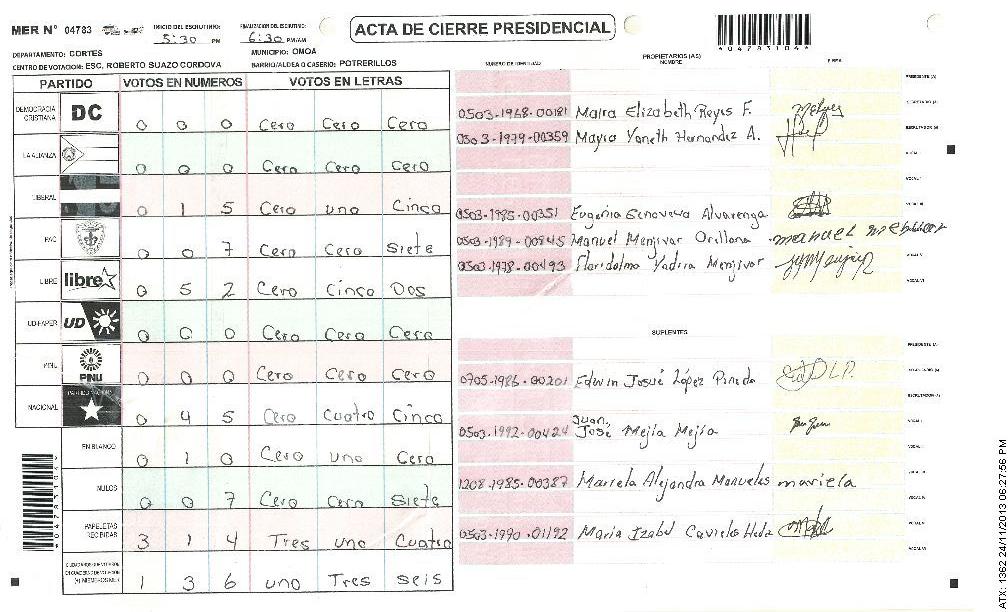 MER N° 04783 INICIO DEL ESCRUTINIO: 5:30 PM FINALIZACION DEL ESCRUTINIO: 6:30 PM/AM
ACTA DE CIERRE PRESIDENCIAL
*04783104*
DEPARTAMENTO: CORTES MUNICIPIO: OMOA
CENTRO DE VOTACION: ESC. ROBERTO SUAZO CORDOVA BARRIO/ALDEA O CASERIO: POTRERILLOS
PARTIDO VOTOS EN NUMEROS VOTOS EN LETRAS
DEMOCRACIA CRISTIANA DC 0 0 0 Cero Cero Cero
LA ALIANZA 0 0 0 Cero Cero Cero
LIBERAL 0 1 5 Cero uno Cinco
PAC 0 0 7 Cero Cero Siete
LIBRE libre 0 5 2 Cero Cinco Dos
UD-FAPER UD 0 0 0 Cero Cero Cero
PINU 0 0 0 Cero Cero Cero
NACIONAL 0 4 5 Cero Cuatro Cinco
EN BLANCO 0 1 0 Cero uno Cero
NULOS 0 0 7 Cero Cero Siete
PAPELETAS RECIBIDAS 3 1 4 Tres uno Cuatro
1 3 6 uno Tres seis
*04783104*
PROPIETARIOS (AS)
NUMERO DE IDENTIDAD NOMBRE FIRMA
PRESIDENTE (A)
SECRETARIO (A)
0503-1968-00181 Maira Elizabeth Reyes F.
ESCRUTADOR (A)
0503-1979-00359 Mayra Yaneth Hernandez A.
VOCAL I
VOCAL II
VOCAL III
0503-1985-00351 Eugenia Genoveva Alvarenga
0503-1989-00845 Manuel Menjivar Orellana manuel
VOCAL V
0503-1978-00493 Floridalma Yadira Menjivar
VOCAL VI
SUPLENTES
PRESIDENTE (A)
SECRETARIO (A)
0705-1986-00201 Edwin Josué López Pineda
ESCRUTADOR (A)
VOCAL I
0503-1992-00424 Juan José Mejía Mejía
VOCAL II
VOCAL III
1208-1985-00387 Mariela Alejandra mariela
VOCAL IV
VOCAL V
0503-1990-01192 Maria Izabel
VOCAL VI
ATX: 1362 24/11/2013 06:27:56 PM